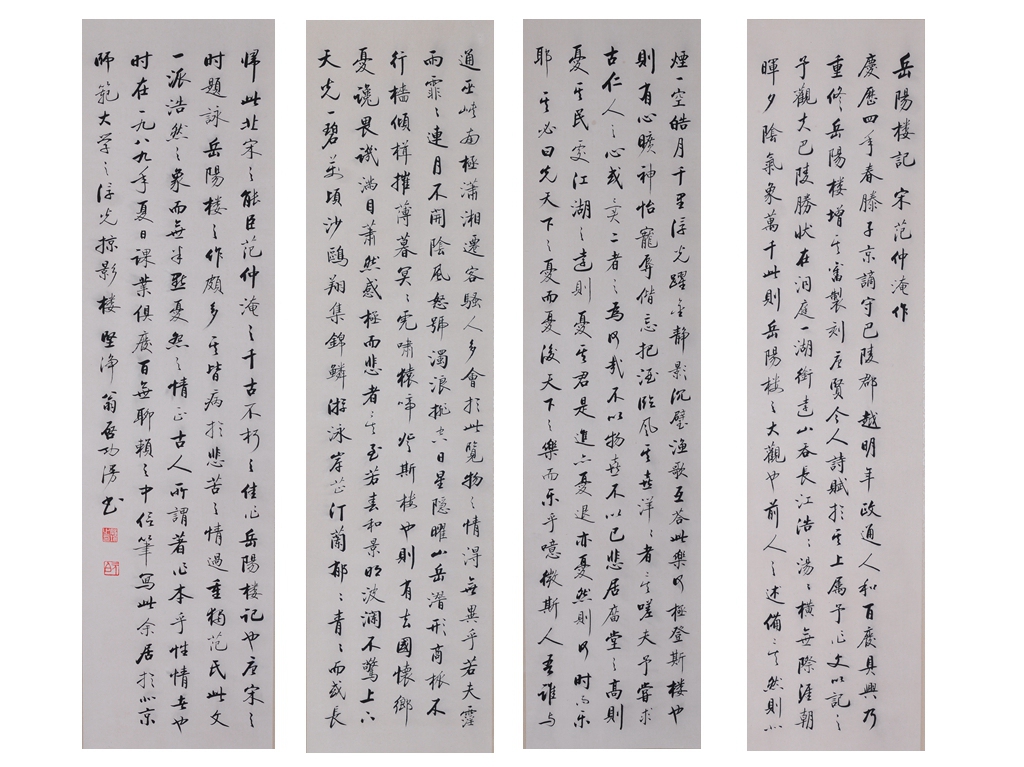 岳陽楼記 宋范仲淹作
慶歷四年春滕子京謫守巴陵郡越明年政通人和百廢具興乃
重修岳陽楼增其舊製刻唐賢今人詩賦於其上属予作文以記之
予觀夫巴陵勝狀在洞庭一湖銜遠山吞長江浩〻湯〻橫無際涯朝
暉夕陰氣象萬千此則岳陽楼之大觀也前人之述備矣然則北
通巫峽南極瀟湘遷客騷人多會於此覽物之情得無異乎若夫霪
雨霏〻連月不開陰風怒號濁浪排空日星隱曜山岳潛形商旅不
行檣傾楫摧薄暮冥〻虎嘯猿啼登斯楼也則有去國懷鄉
憂讒畏譏滿目蕭然感極而悲者矣至若春和景明波瀾不驚上下
天光一碧萬頃沙鷗翔集錦鱗游泳岸芷汀蘭郁〻青〻而或長
煙一空皓月千里浮光躍金靜影沉璧漁歌互荅此樂何極登斯楼也
則有心曠神怡寵辱偕忘把酒臨風其喜洋〻者矣嗟夫予嘗求
古仁人之心或異二者之為何哉不以物喜不以己悲居廟堂之高則
憂其民處江湖之遠則憂其君是進亦憂退亦憂然則何时而乐
耶其必曰先天下之憂而憂後天下之樂而乐乎噫微斯人吾谁与
帰此北宋之能臣范仲淹之千古不朽之佳作岳陽楼記也唐宋之
时題詠岳陽楼之作頗多其皆病於悲苦之情過重獨范氏此文
一派浩然之象而無半點憂怨之情正古人所謂著作本乎性情者也
时在一九八九年夏日課業俱廢百無聊賴之中信筆寫此余居於北京
师範大学之浮光掠影楼 堅净翁启功漫书